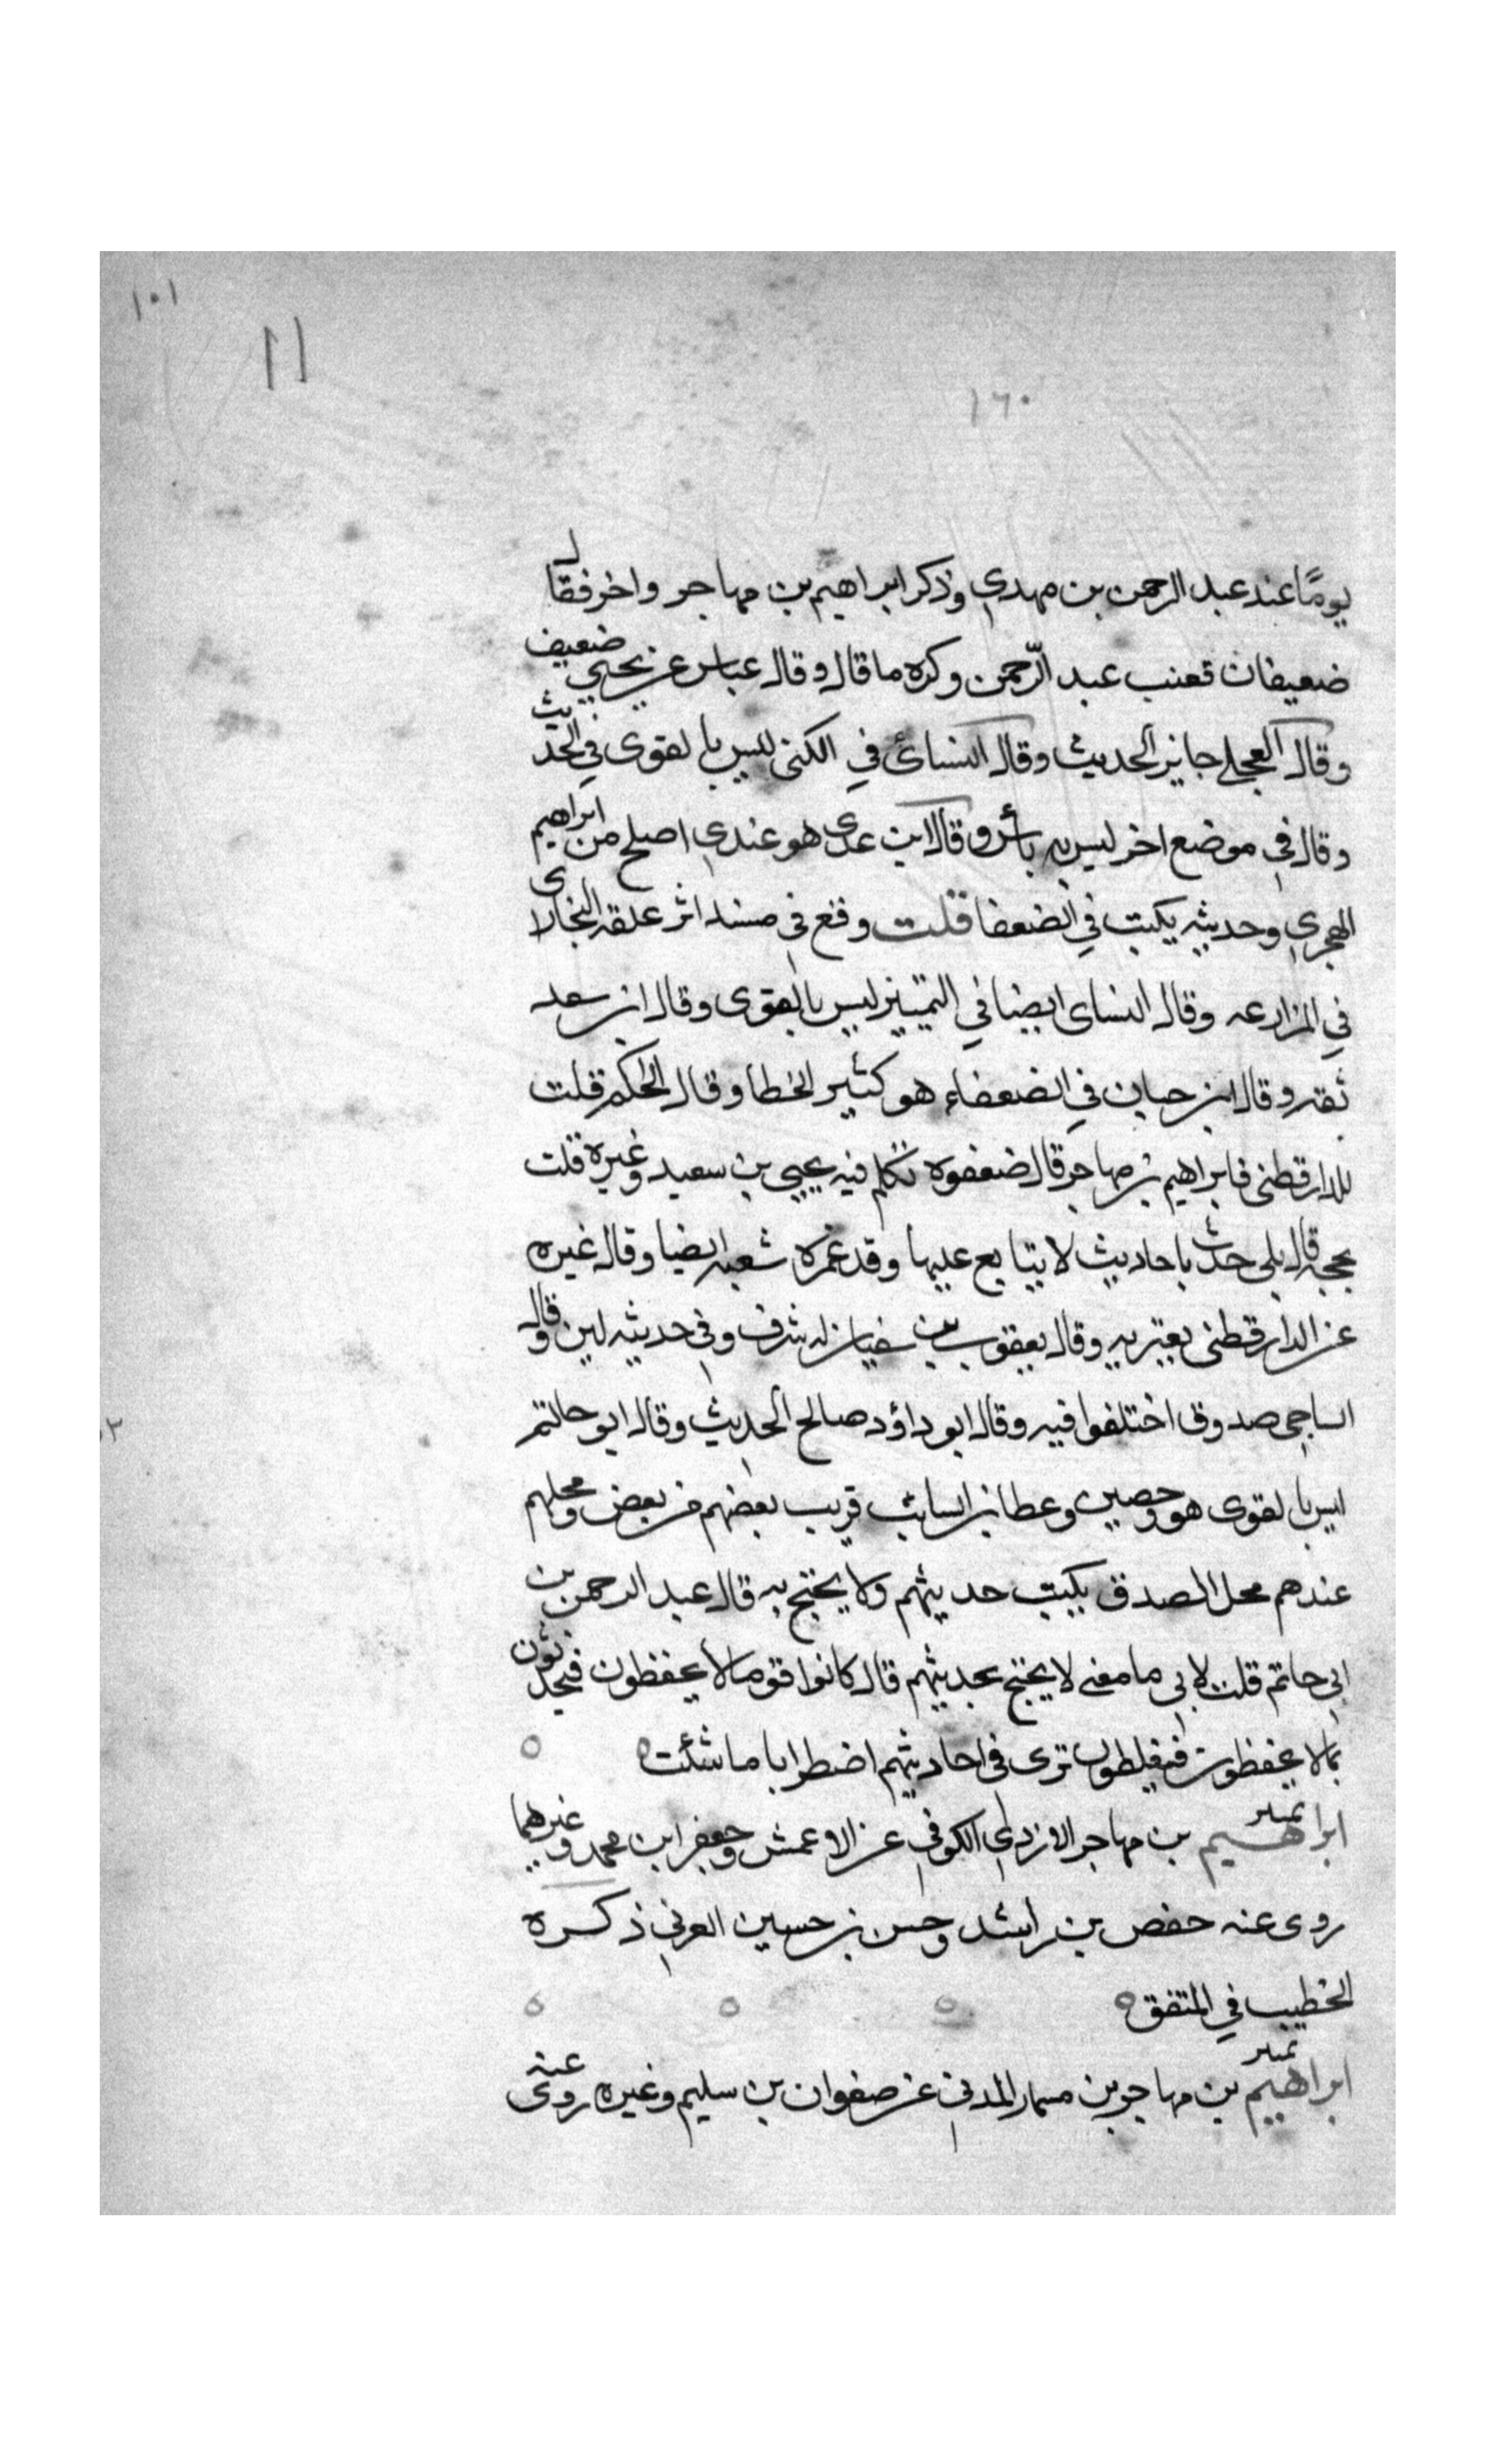 ١٠١
١١
١٦٠
يومًا عند عبد الرحمن بن مهدي وذكر ابراهيم بن مهاجر واخر فقال
ضعيفان فعنب عبد الرّحمن وكره ما قال وقال عباس عن يحيي ضعيف
وقال العجلي جايز الحديث وقال النسائ في الكنى ليس بالقوى في الحديث
وقال في موضع اخر ليس به بأس وقال ابن عدى هو عندي اصلح من ابراهيم
الهجري وحديثه يكتب في الضعفا قلت وقع في مسند اثر علقه البخارى
في المزارعه وقال النساى ايضا في التمييز ليس بالقوى وقال ابن سعد
ثقه وقال ابن حبان في الضعفاء هو كثير الخطا وقال الحاكم قلت
للدارقطنى فابراهيم بن مهاجر قال ضعفوه تكلم فيه يحيى بن سعيد وغيره قلت
بحجه قال بلى حدث باحاديث لا يتابع عليها وقد غمزه شعبه ايضا وقال غيره
عن الدارقطنى يعتبر به وقال يعقوب بن سفيان له شرف وفي حديثه لين وقال
الساجى صدوق اختلفوا فيه وقال ابو داؤد صالح الحديث وقال ابو حاتم
ليس بالقوى هو وحصين وعطا بن السائب قريب بعضهم من بعض ومحلهم
عندهم محل الصدق يكتب حديثهم ولا يحتج به قال عبد الرحمن بن
ابى حاتم قلت لابى ما معنى لا يحتج بحديثهم قال كانوا قوما لا يحفظون فيحدثون
بما لا يحفظون فيغلطون ترى في احاديثهم اضطرابا ما شئت
تمييز
ابراهيم بن مهاجر الازدي الكوفي عن الاعمش وجعفر ابن محمد وغيرهما
روى عنه حفص بن راشد وحسن بن حسين العرني ذكره
الخطيب في المتفق
تمييز
ابراهيم بن مهاجر بن مسمار المدنى عن صفوان بن سليم وغيره روى عنه